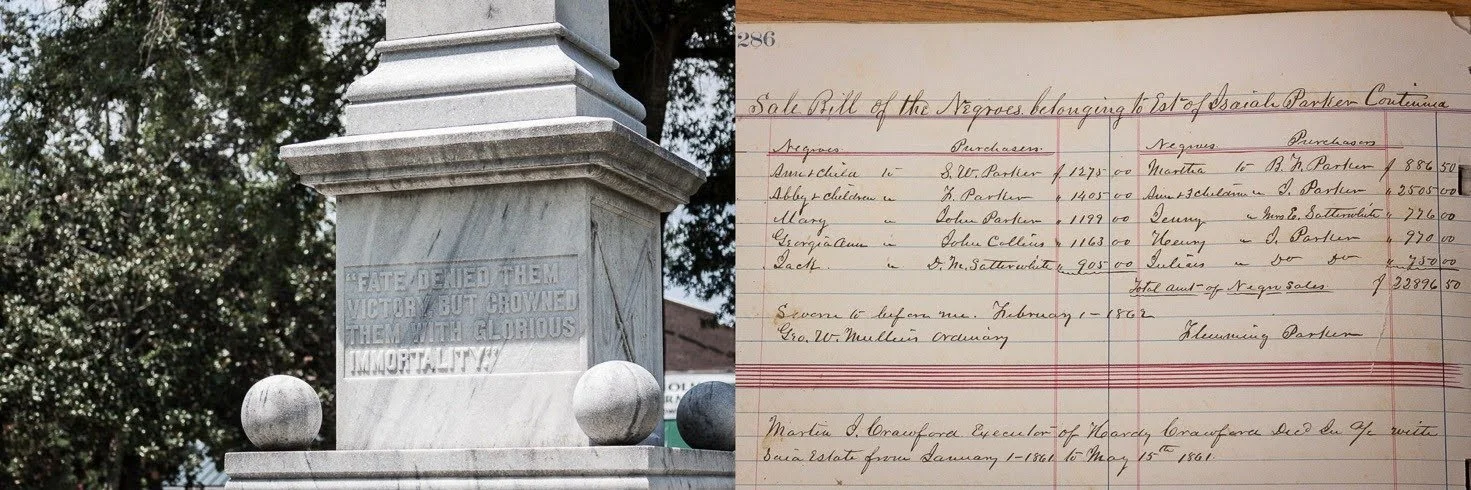 "FATE DENIED THEM
VICTORY BUT CROWNED
THEM WITH GLORIOUS
IMMORTALITY."
286
Sale Bill of the Negroes belonging to Est of Isaiah Parker Continued
Negroes Purchasers Negroes Purchasers
Ann & child to S. W. Parker $ 1275 00 Martha to B. F. Parker $ 886 50
Abby & children " F. Parker " 1405 00 Ann & 3 children " I. Parker " 2505 00
Mary " John Parker " 1199 00 Jenny " Mrs E. Satterwhite " 776 00
Georgia Ann " John Collins " 1163 00 Henry " I. Parker " 970 00
Jack " D. M. Satterwhite " 905 00 Julias " Do Do " 750 00
Total amt of Negro Sales $ 22896 50
Sworn to before me. February 1 - 1862
Geo. W. Mullins ordinary Flemming Parker
Martin J. Crawford Executor of Hardy Crawford Decd In a/c with
Said Estate from January 1 - 1861 to May 15th 1861